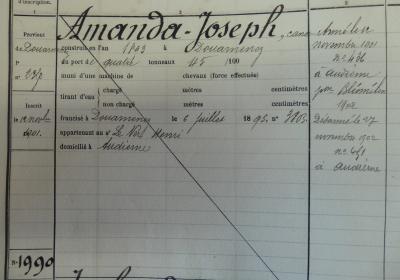 d'inscription.
Amanda-Joseph, canot
Provient
de Douarnenez
construit en l'an 1893 à Douarnenez
du port de quatre tonneaux 45/100
F°
n° 237
muni d'une machine de chevaux (force effectuée)
tirant d'eau
chargé mètres centimètres
non chargé mètres centimètres
Inscrit
le
1901.
francisé à Douarnenez le 6 juillet 1895, n°
appartenant au sr Le Henri
domicilié à Audierne
N° 1990
Armé le
novembre 1901
n° 436
à Audierne
pour
1902
Désarmé le 27
novembre 1902
n° 451
à Audierne